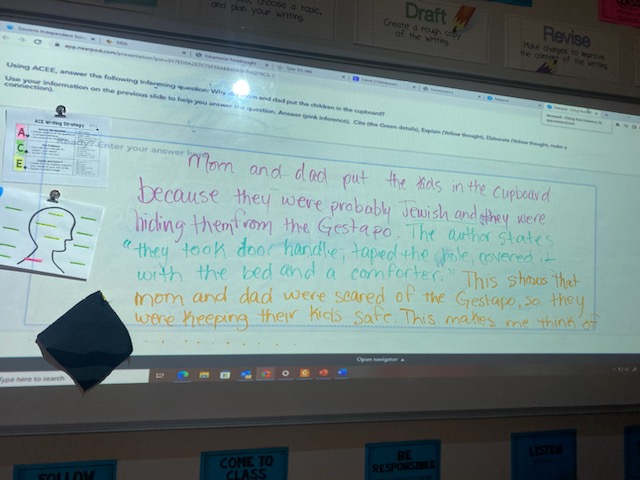 choose a topic,
and plan your writing.
Draft
Create a rough copy
of the writing.
Revise
Make changes to improve
the content of the writing.
Using ACEE, answer the following inferencing question: Why did mom and dad put the children in the cupboard?
Use your information on the previous slide to help you answer the question. Answer (pink inference), Cite (the Green details), Explain (Yellow thought), Elaborate (Yellow thought, make a
connection).
ACE Writing Strategy
A
C
E
Ready? Enter your answer here
Mom and dad put the kids in the cupboard
because they were probably Jewish and they were
hiding them from the Gestapo. The author states
"they took door handle, taped the hole, covered it
with the bed and a comforter." This shows that
mom and dad were scared of the Gestapo, so they
were keeping their kids safe. This makes me think of
Open navigator
Type here to search
FOLLOW
COME TO
CLASS
BE
RESPONSIBLE
LISTEN